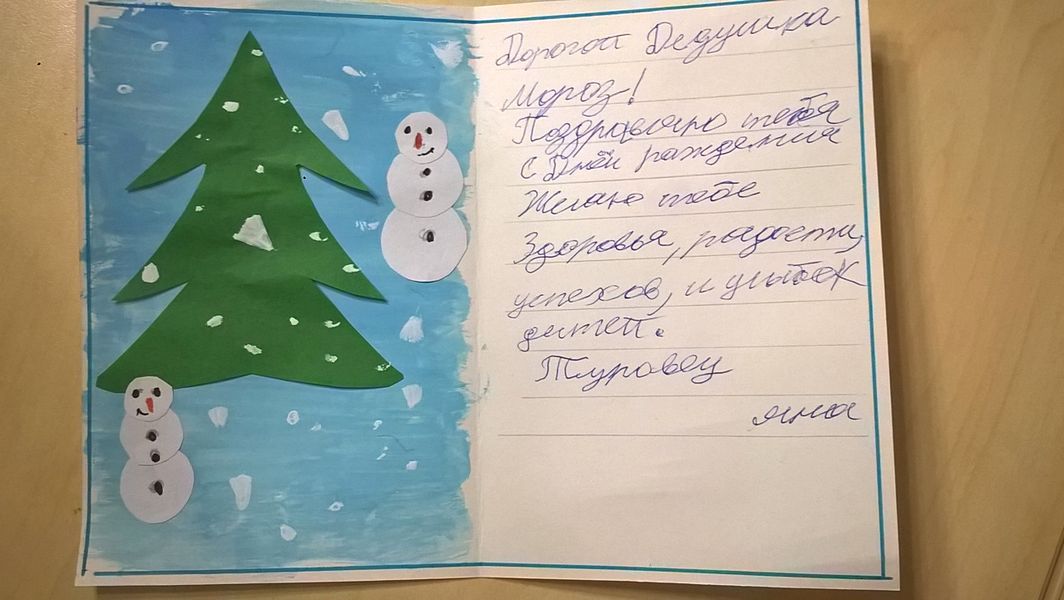 Дорогой Дедушка
Мороз!
Поздравляю тебя
с Днём рождения
Желаю тебе
Здоровья, радости,
успехов, и улыбок
детей.
Туровец
яна